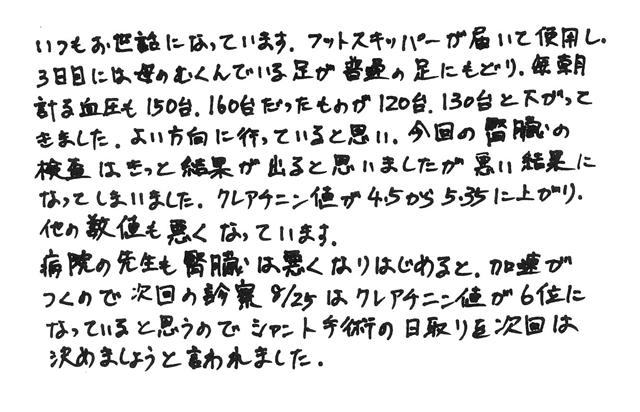 いつもお世話になっています. フットスキッパーが届いて使用し.
3日目には母のむくんでいる足が普通の足にもどり. 毎朝
計る血圧も150台. 160台だったものが120台. 130台と下がって
きました. よい方向に行っていると思い. 今回の腎臓の
検査はきっと結果が出ると思いましたが悪い結果に
なってしまいました. クレアチニン値が4.5から5.35に上がり.
他の数値も悪くなっています.
病院の先生も腎臓は悪くなりはじめると. 加速が
つくので次回の診察8/25はクレアチニン値が6位に
なっていると思うのでシャント手術の日取りを次回は
決めましょうと言われました.